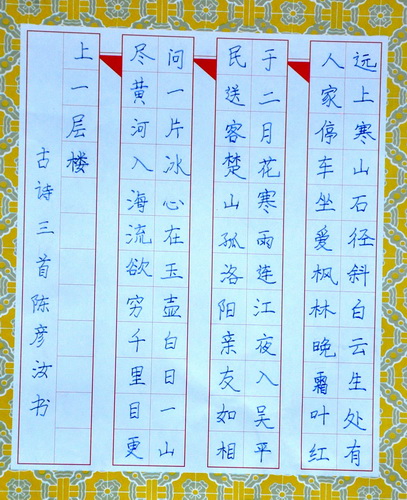 远上寒山石径斜白云生处有
人家停车坐爱枫林晚霜叶红
于二月花寒雨连江夜入吴平
民送客楚山孤洛阳亲友如相
问一片冰心在玉壶白日一山
尽黄河入海流欲穷千里目更
上一层楼
古诗三首陈彦汝书